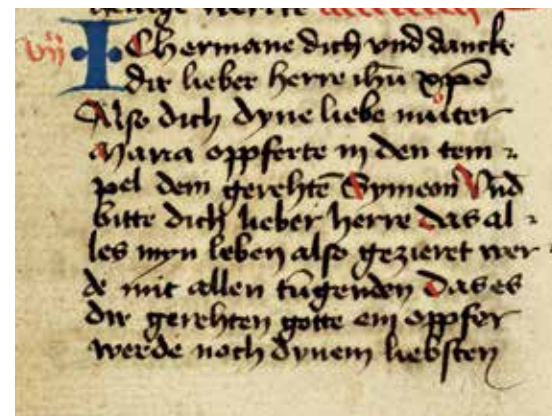 vij
ICh ermane dich vnd dancke
dir lieber herre ihū xpē
Also dich dyne liebe můter
Maria oppferte in den tem⸗
pel dem gerehtē Symeon Vnd
bitte dich lieber herre das al⸗
les myn leben also gezieret wer⸗
de mit allen tugenden Das es
dir gerehten gotte ein oppfer
werde noch dynem liebsten